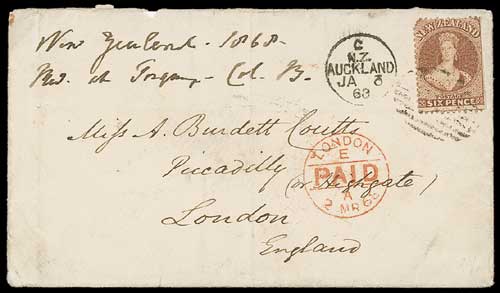 New Zealand - 1868 -
C
N.Z.
AUCKLAND
JA 3
68
NEW ZEALAND
POSTAGE
SIX PENCE
Rd. at Torquay - Col. B.
Miss A. Burdett Coutts
Piccadilly (or Highgate)
London
England
LONDON
E
PAID
A
2 MR 68